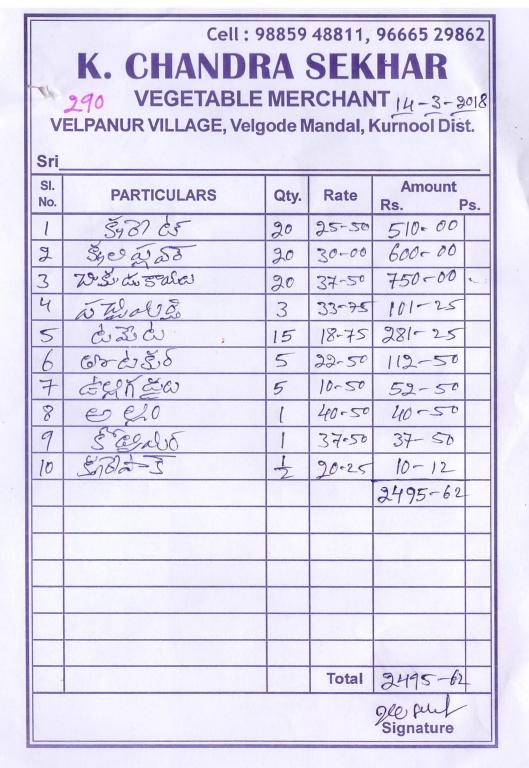 Cell : 98859 48811, 96665 29862
K. CHANDRA SEKHAR
290 VEGETABLE MERCHANT 14-3-2018
VELPANUR VILLAGE, Velgode Mandal, Kurnool Dist.
Sri
Sl. No. PARTICULARS Qty. Rate Amount Rs. Ps.
1 క్యారెట్ 20 25-50 510-00
2 20 30-00 600-00
3 20 37-50 750-00
4 3 33-75 101-25
5 టమోట 15 18-75 281-25
6 తోటకూర 5 22-50 112-50
7 ఉల్లిగడ్డలు 5 10-50 52-50
8 అల్లం 1 40-50 40-50
9 1 37-50 37-50
10 1/2 20-25 10-12
2495-62
Total 2495-62
Signature